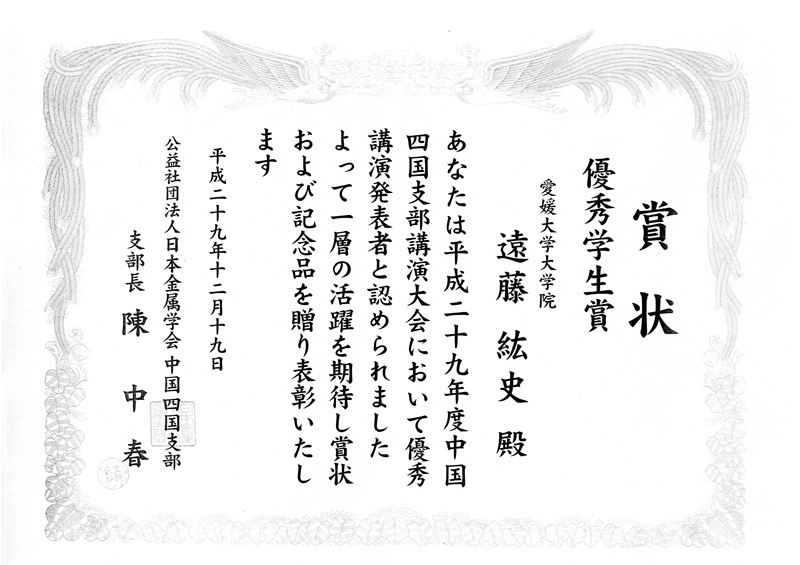 賞状
優秀学生賞
愛媛大学大学院
遠藤 紘史 殿
あなたは平成二十九年度中国
四国支部講演大会において優秀
講演発表者と認められました
よって一層の活躍を期待し賞状
および記念品を贈り表彰いたし
ます
平成二十九年十二月十九日
公益社団法人日本金属学会 中国四国支部
支部長 陳 中 春